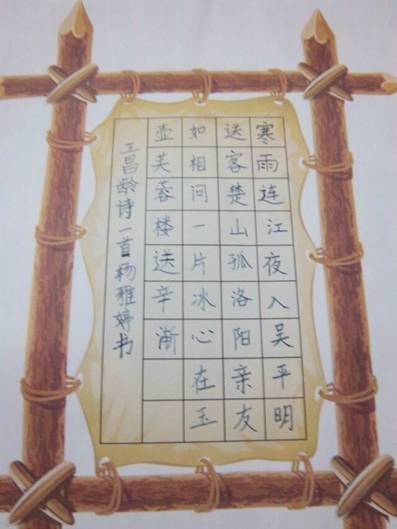 寒雨连江夜入吴平明
送客楚山孤洛阳亲友
如相问一片冰心在玉
壶芙蓉楼送辛渐
王昌龄诗一首杨雅婷书